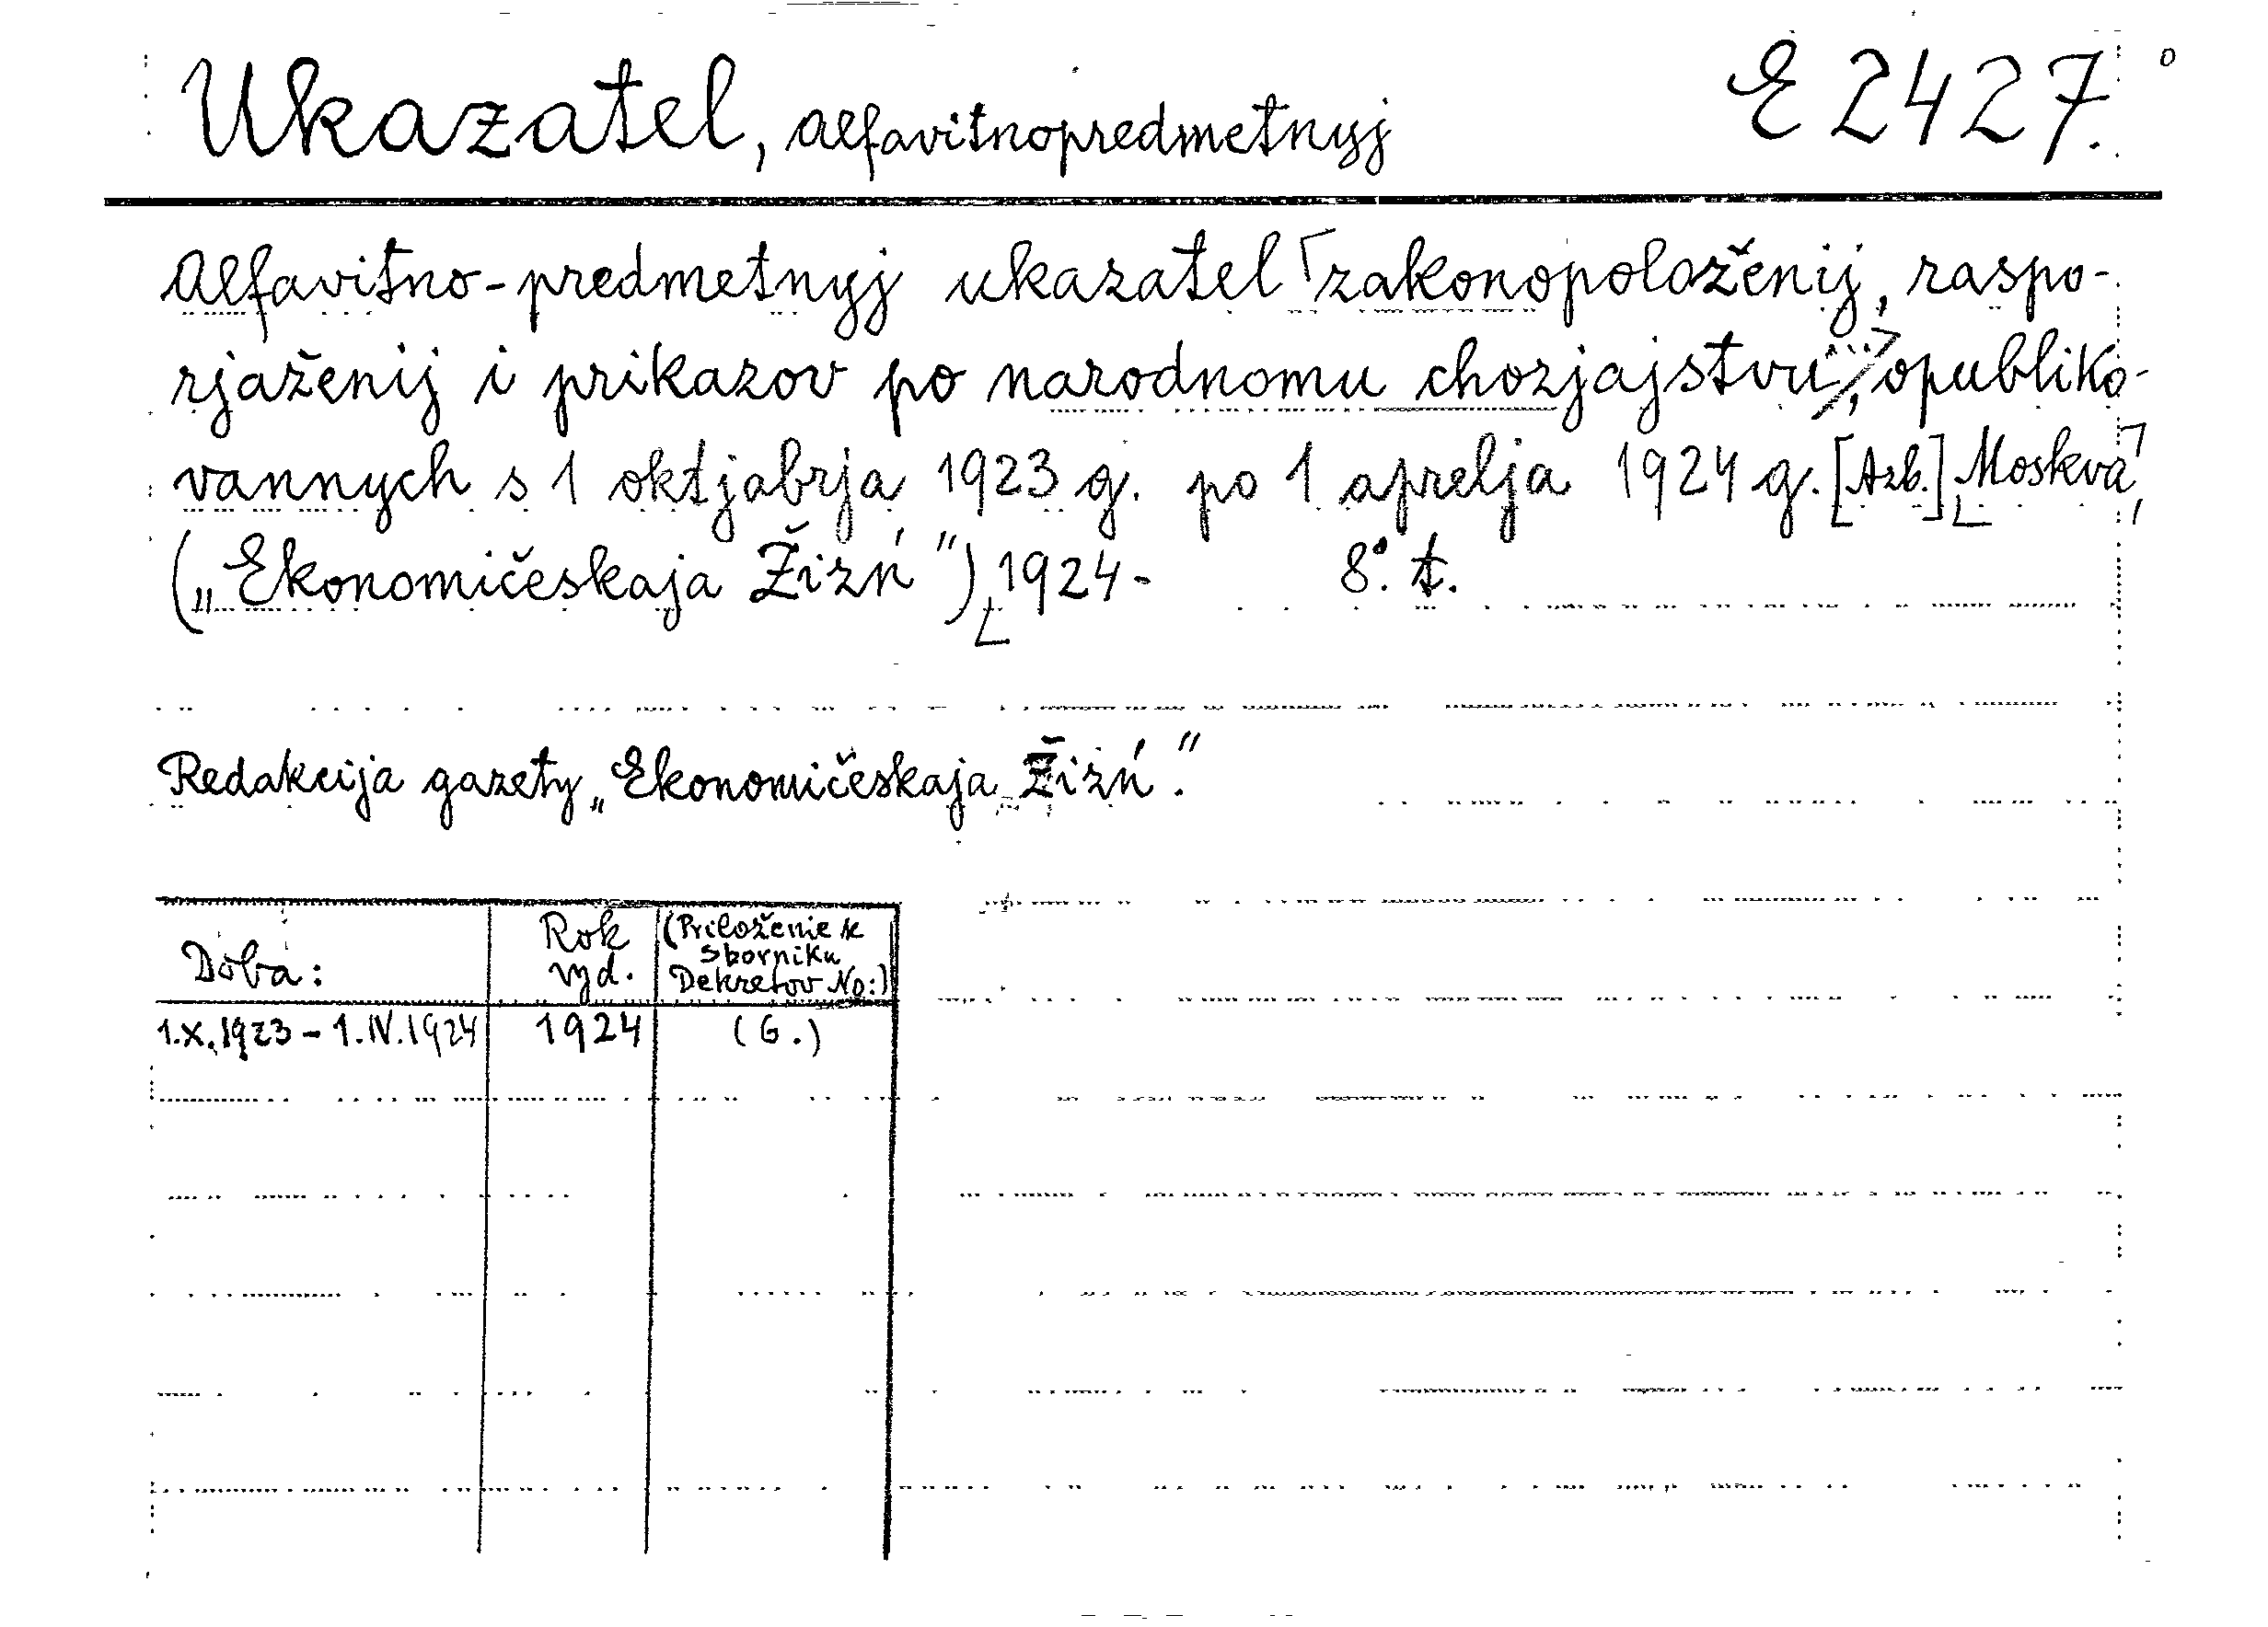 Ukazatel, alfavitnopredmetnyj E 2427.
Alfavitno-predmetnyj ukazatel zakonopoloženij, raspo-
rjaženij i prikazov po narodnomu chozjajstvu, opubliko-
vannych s 1 oktjabrja 1923 g. po 1 aprelja 1924 g. [Azb.] Moskva,
(„Ekonomičeskaja Žizń") 1924- 8°. t.
Redakcija gazety „Ekonomičeskaja Žizń."
Doba: Rok vyd. (Priloženie k Sborniku Dekretov No:)
1.X.1923 - 1.IV.1924 1924 (6.)